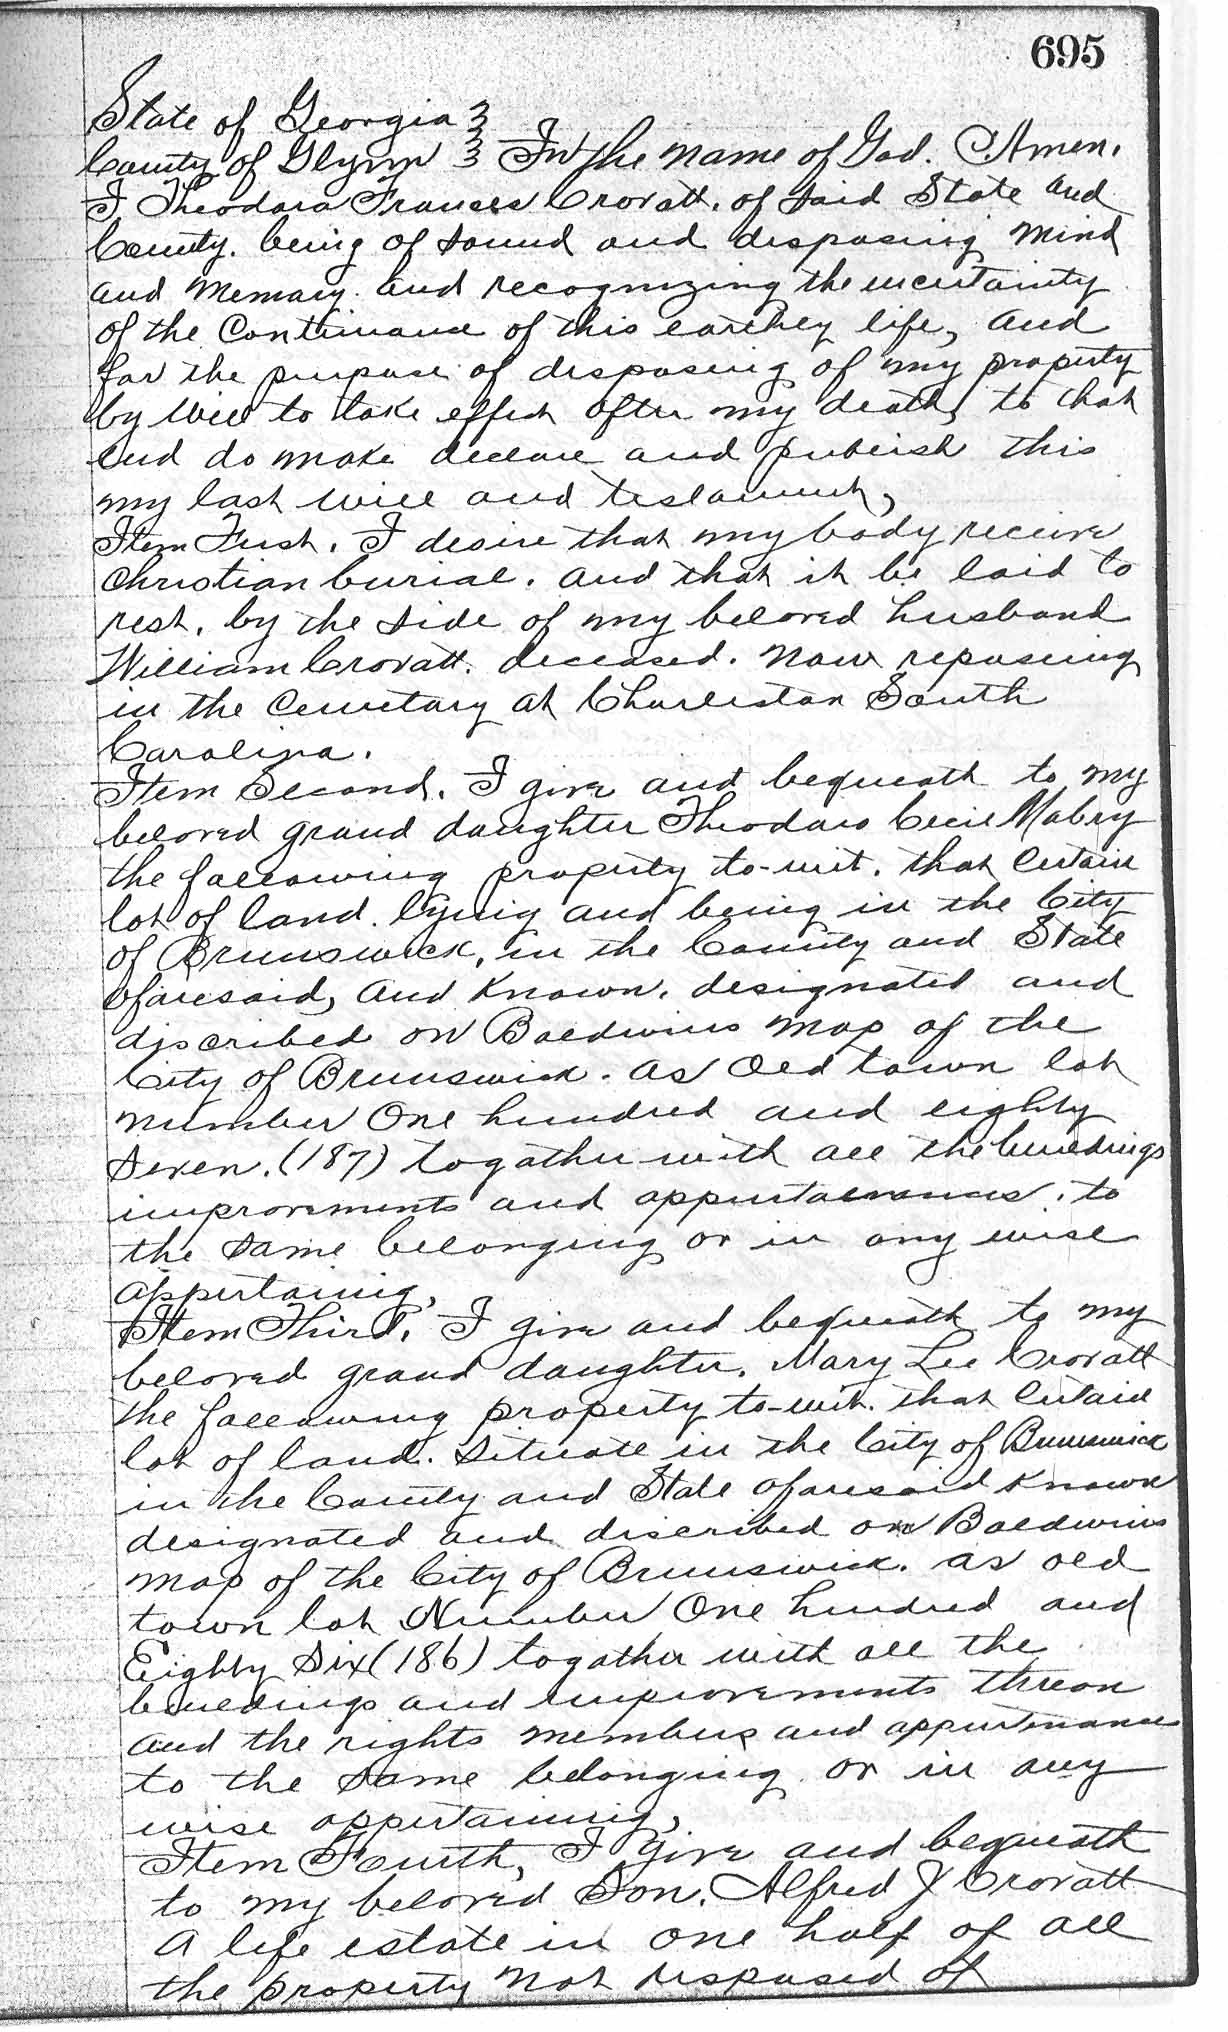 695
State of Georgia }
County of Glynn } In the name of God. Amen.
I Theodora Frances Crovatt. of said State and
County. being of sound and disposing mind
and memory. and recognizing the uncertainty
of the Continuance of this earthey life, and
for the purpose of disposing of my property
by Will to take effect after my death, to that
end do make declare and publish this
my last will and testament,
Item First. I desire that my body receive
Christian burial. and that it be laid to
rest. by the side of my beloved husband
William Crovatt. deceased. now reposeing
in the Cemetary at Charleston South
Carolina.
Item Second. I give and bequeath to my
beloved grand daughter Theodora Cecil Mabry
the following property to-wit. that certain
lot of land. lying and being in the City
of Brunswick, in the County and State
aforesaid, and known. designated and
discribed on Baldwins map of the
City of Brunswick. as Old town lot
number One hundred and eighty
seven. (187) togather with all the buildings
improvements and appurtanances. to
the same belonging or in any wise
appertaining,
Item Third. I give and bequeath to my
beloved grand daughter. Mary Lee Crovatt
the following property to-wit. that certain
lot of land. situate in the City of Brunswick
in the County and State aforesaid known
designated and discribed on Baldwins
map of the City of Brunswick. as old
town lot Number One hundred and
Eighty Six (186) togather with all the
buildings and improvements threon
and the rights members and appurtenances
to the same belonging or in any
wise appertaining,
Item Fourth, I give and bequeath
to my beloved Son. Alfred J Crovatt
A life estate in one half of all
the property not disposed of